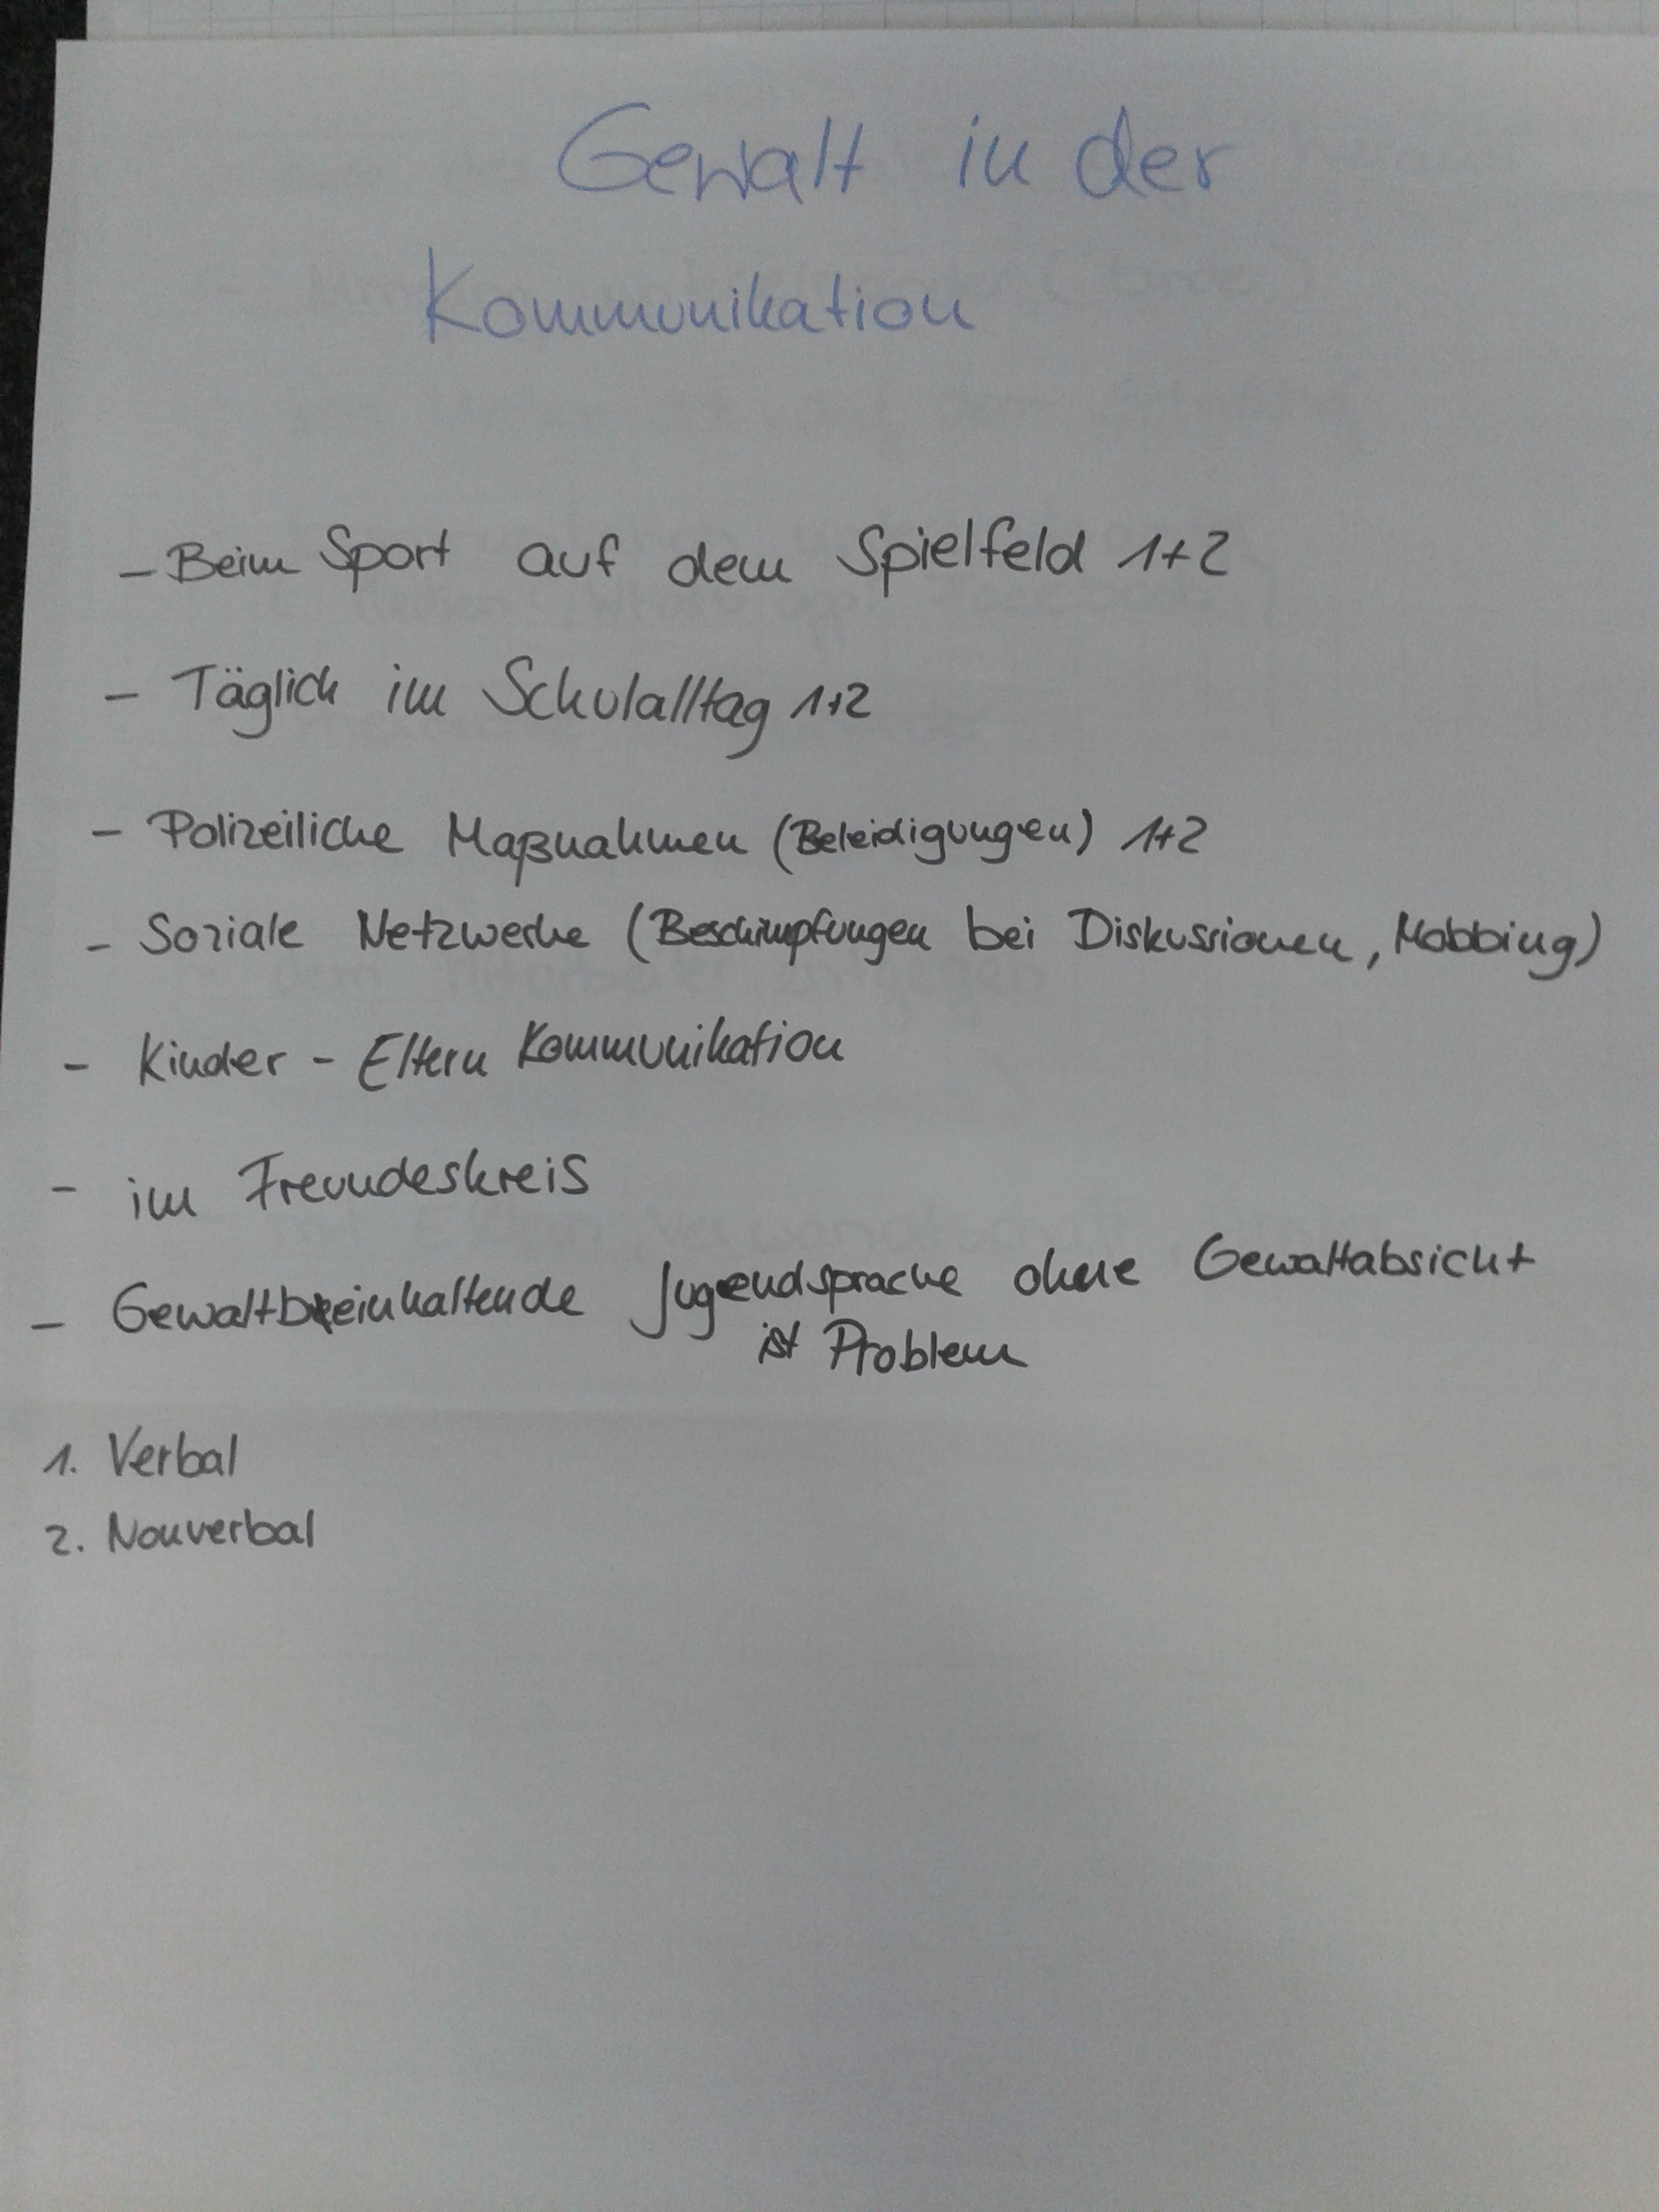 Gewalt in der
Kommunikation
- Beim Sport auf dem Spielfeld 1+2
- Täglich im Schulalltag 1+2
- Polizeiliche Maßnahmen (Beleidigungen) 1+2
- Soziale Netzwerke (Beschimpfungen bei Diskussionen, Mobbing)
- Kinder - Eltern Kommunikation
- im Freundeskreis
- Gewaltbeinhaltende Jugendsprache ohne Gewaltabsicht
ist Problem
1. Verbal
2. Nonverbal